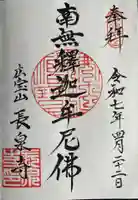 奉拝
令和七年四月二十二日
南無釋迦牟尼佛
長泉寺